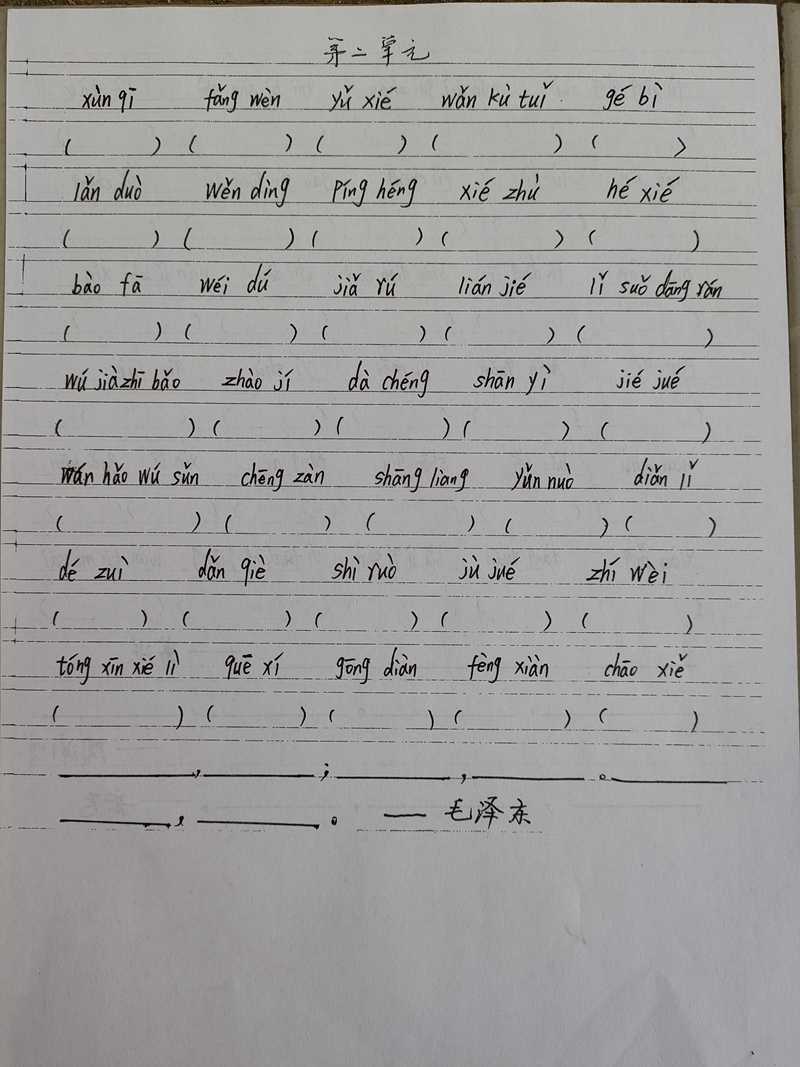 第二单元
xùn qī fǎng wèn yǔ xié wǎn kù tuǐ gé bì
( ) ( ) ( ) ( ) ( )
lǎn duò wěn dìng píng héng xié zhù hé xié
( ) ( ) ( ) ( ) ( )
bào fā wéi dú jiǎ rú lián jié lǐ suǒ dāng rán
( ) ( ) ( ) ( ) ( )
wú jiàzhī bǎo zhào jí dà chéng shān yì jié jué
( ) ( ) ( ) ( ) ( )
wán hǎo wú sǔn chēng zàn shāng liang yǔn nuò diǎn lǐ
( ) ( ) ( ) ( ) ( )
dé zuì dǎn qiè shì ruò jù jué zhí wèi
( ) ( ) ( ) ( ) ( )
tóng xīn xié lì quē xí gōng diàn fèng xiàn chāo xiě
( ) ( ) ( ) ( ) ( )
______,______;______,______。______
______,______。 — 毛泽东